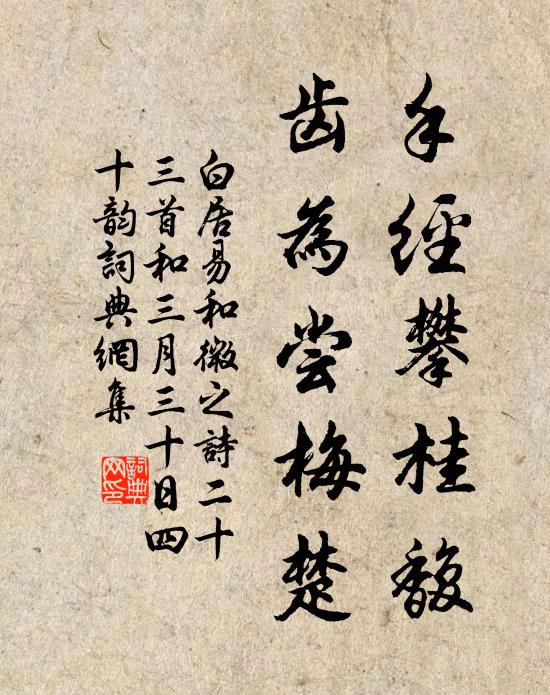 手經攀桂馥
齿為尝梅楚
白居易和微之詩二十
三首和三月三十日四
十韵詞典網集
詞典
网印